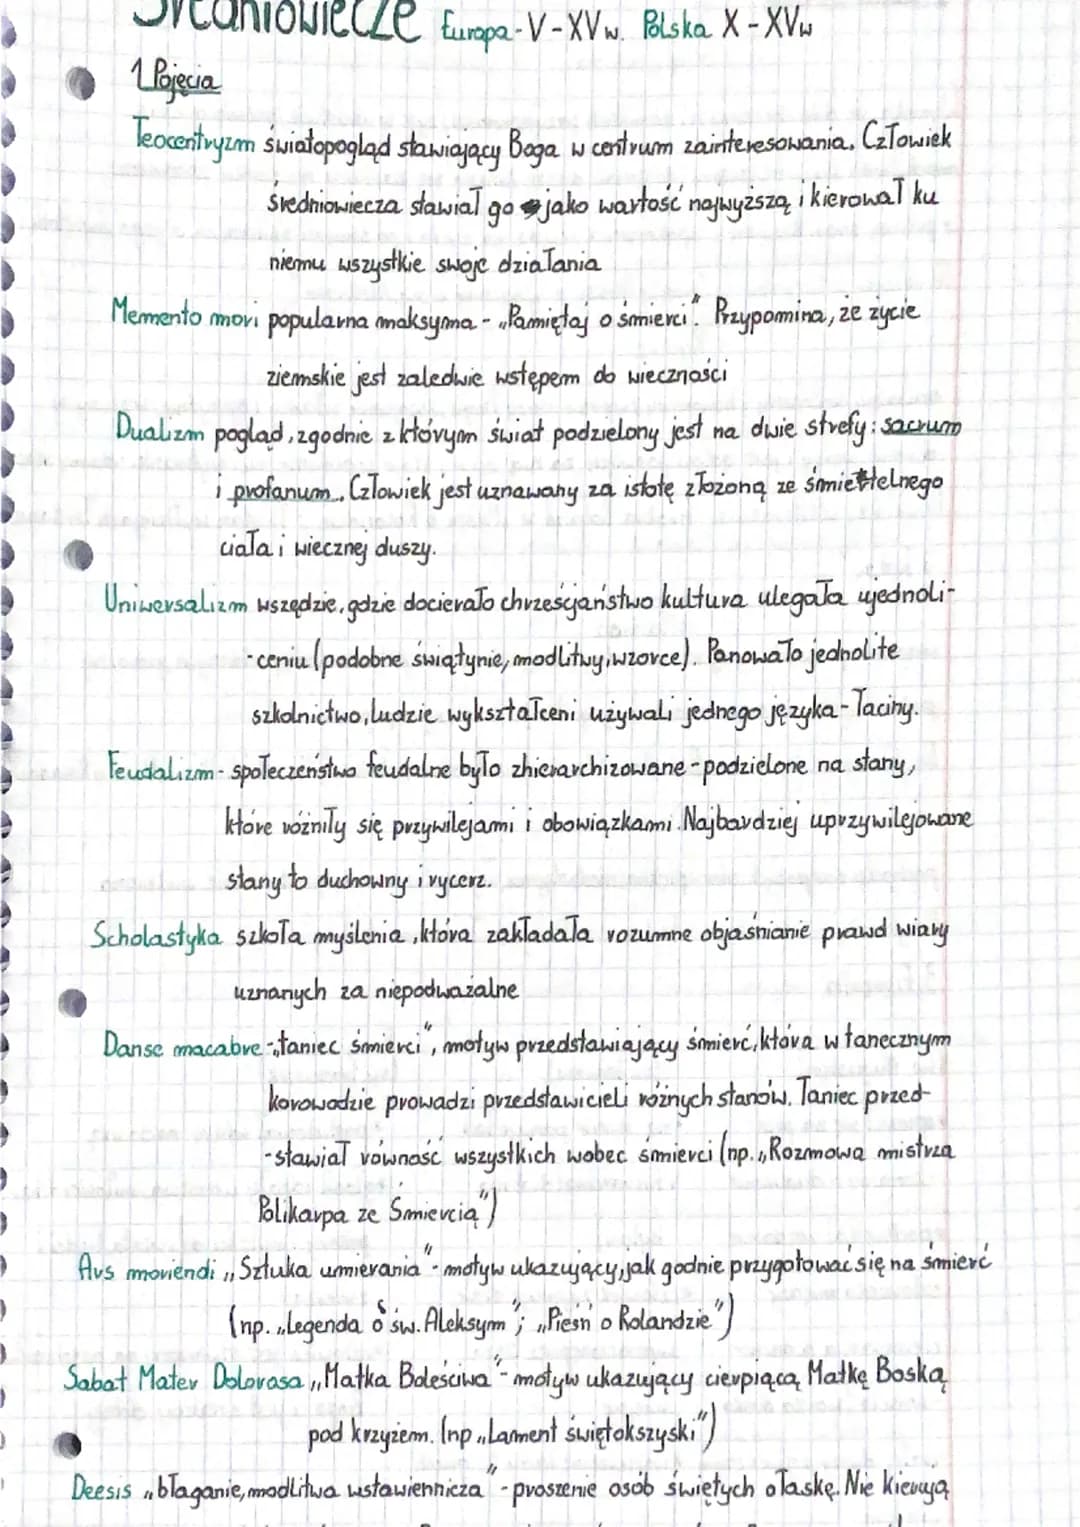 Średniowiecze Europa - V - XV w. Polska X - XV w
1 Pojęcia
Teocentryzm światopogląd stawiający Boga w centrum zainteresowania. Człowiek
średniowiecza stawiał go jako wartość najwyższą i kierował ku
niemu wszystkie swoje działania
Memento mori popularna maksyma - „Pamiętaj o śmierci". Przypomina, że życie
ziemskie jest zaledwie wstępem do wieczności
Dualizm pogląd, zgodnie z którym świat podzielony jest na dwie strefy: sacrum
i profanum. Człowiek jest uznawany za istotę złożoną ze śmiertelnego
ciała i wiecznej duszy.
Uniwersalizm wszędzie, gdzie docierało chrześcjaństwo kultura ulegała ujednoli-
-ceniu (podobne świątynie, modlitwy, wzorce). Panowało jednolite
szkolnictwo, ludzie wykształceni używali jednego języka - łaciny.
Feudalizm - społeczeństwo feudalne było zhierarchizowane - podzielone na stany,
które różniły się przywilejami i obowiązkami. Najbardziej uprzywilejowane
stany to duchowny i rycerz.
Scholastyka szkoła myślenia, która zakładała rozumne objaśnianie prawd wiary
uznanych za niepodważalne
Danse macabre - „taniec śmierci", motyw przedstawiający śmierć, która w tanecznym
korowodzie prowadzi przedstawicieli różnych stanów. Taniec przed-
-stawiał równość wszystkich wobec śmierci (np. „Rozmowa mistrza
Polikarpa ze Śmiercią")
Ars moriendi „Sztuka umierania" - motyw ukazujący, jak godnie przygotować się na śmierć
(np. „Legenda o św. Aleksym"; „Pieśń o Rolandzie")
Sabat Mater Dolorosa „Matka Boleściwa" - motyw ukazujący cierpiącą Matkę Boską
pod krzyżem. (np „Lament świętokszyski")
Deesis „błaganie, modlitwa wstawiennicza" - proszenie osób świętych o łaskę. Nie kierują